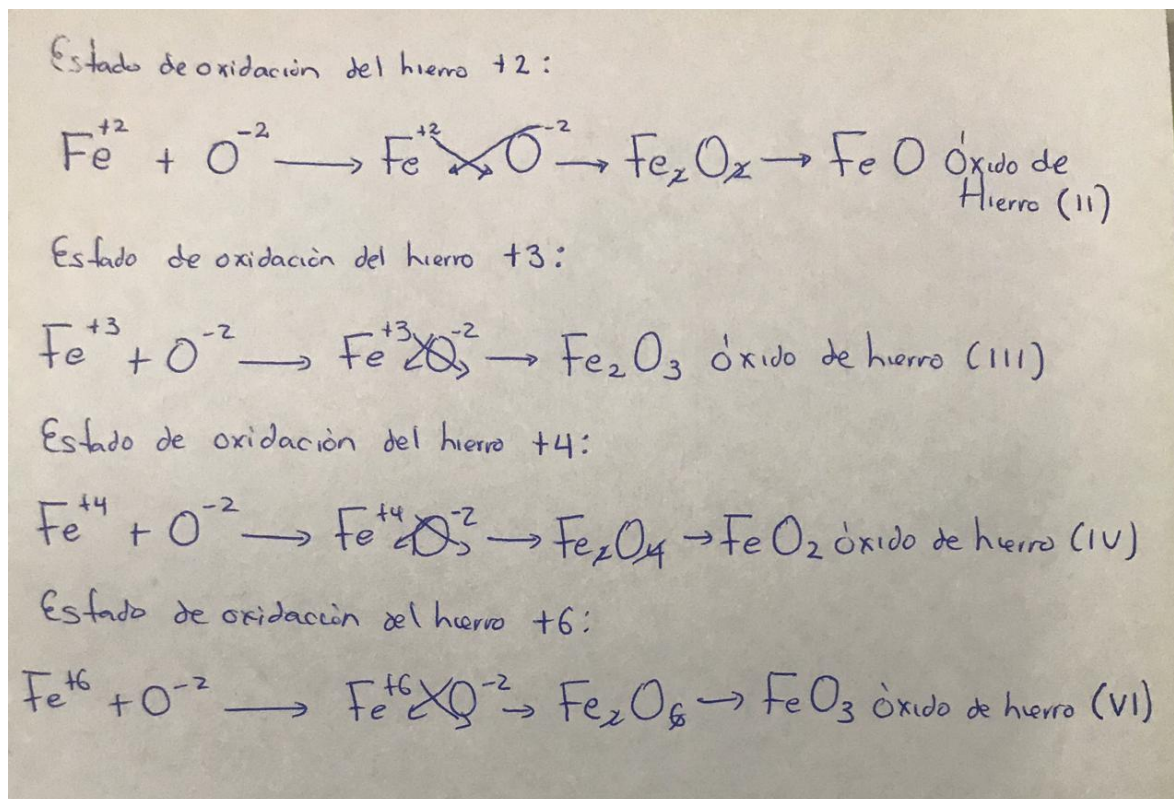 Estado de oxidación del hierro +2:
Fe⁺² + O⁻² → Fe⁺² O⁻² → Fe₂O₂ → FeO Óxido de
Hierro (II)
Estado de oxidaciòn del hierro +3:
Fe⁺³ + O⁻² → Fe⁺³ O⁻² → Fe₂O₃ óxido de hierro (III)
Estado de oxidaciòn del hierro +4:
Fe⁺⁴ + O⁻² → Fe⁺⁴ O⁻² → Fe₂O₄ → FeO₂ óxido de hierro (IV)
Estado de oxidaciòn del hierro +6:
Fe⁺⁶ + O⁻² → Fe⁺⁶ O⁻² → Fe₂O₆ → FeO₃ óxido de hierro (VI)